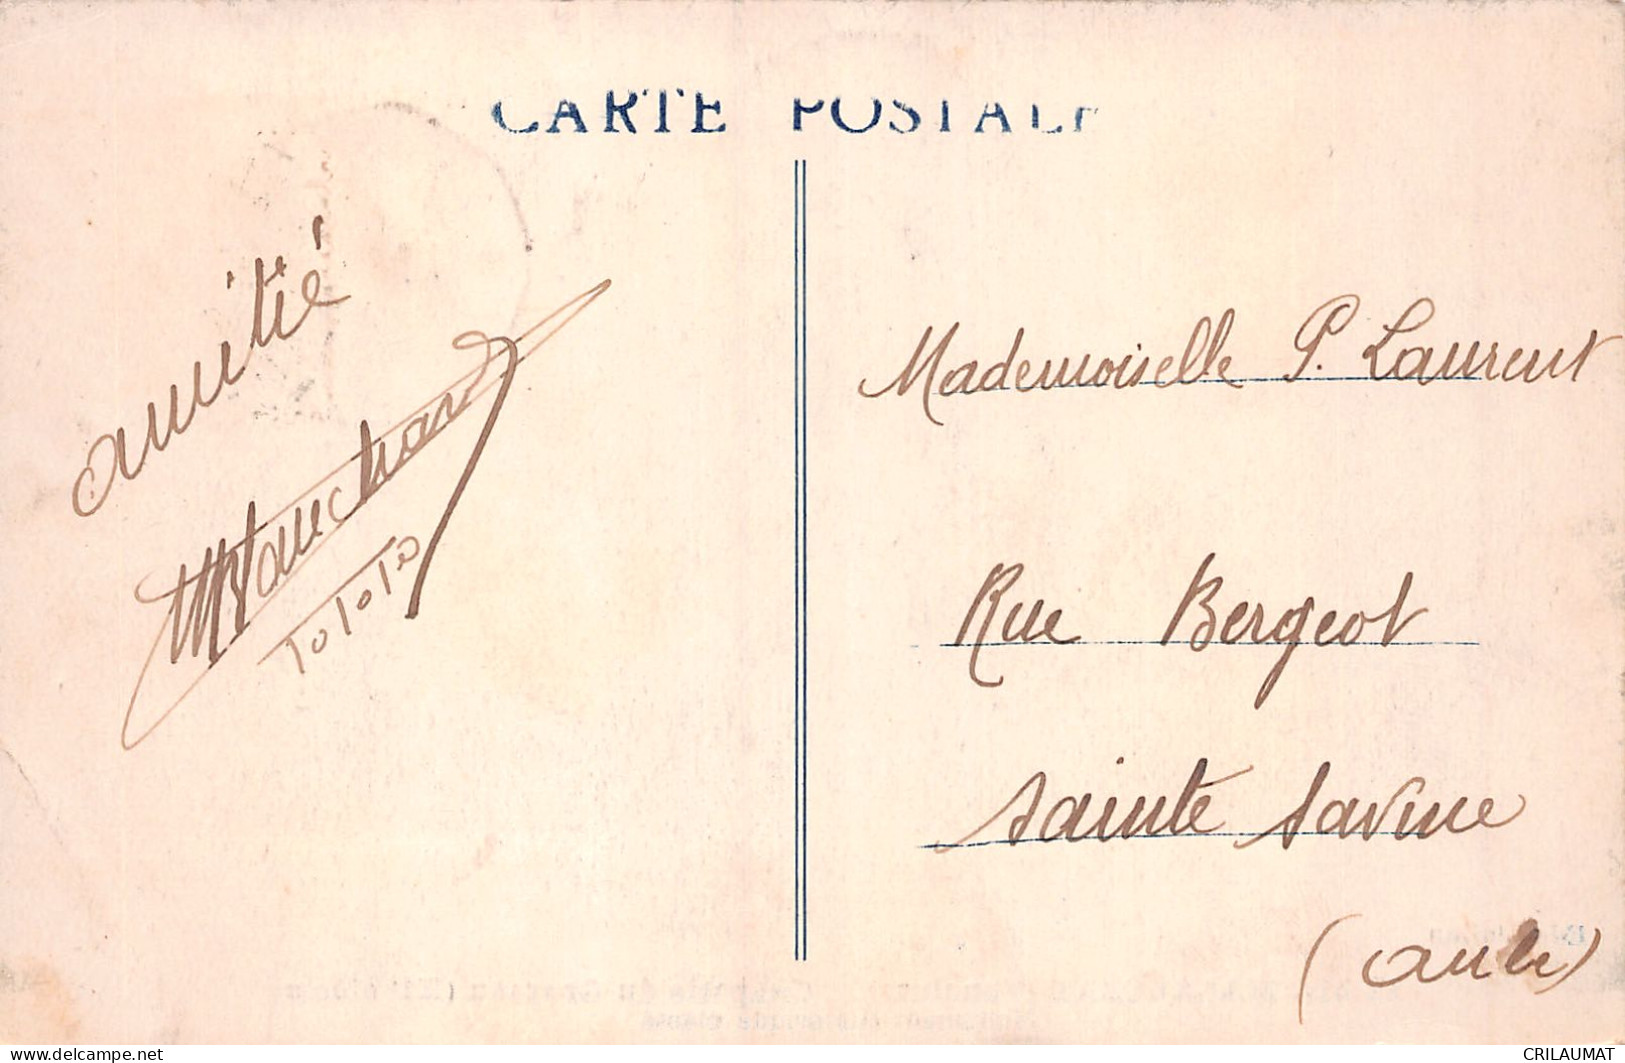 CARTE POSTALE
amitié
10/10/10
Mademoiselle P. Laurent
Rue Bergeot
Sainte Savine
(Aube)
delcampe.net
CRILAUMAT